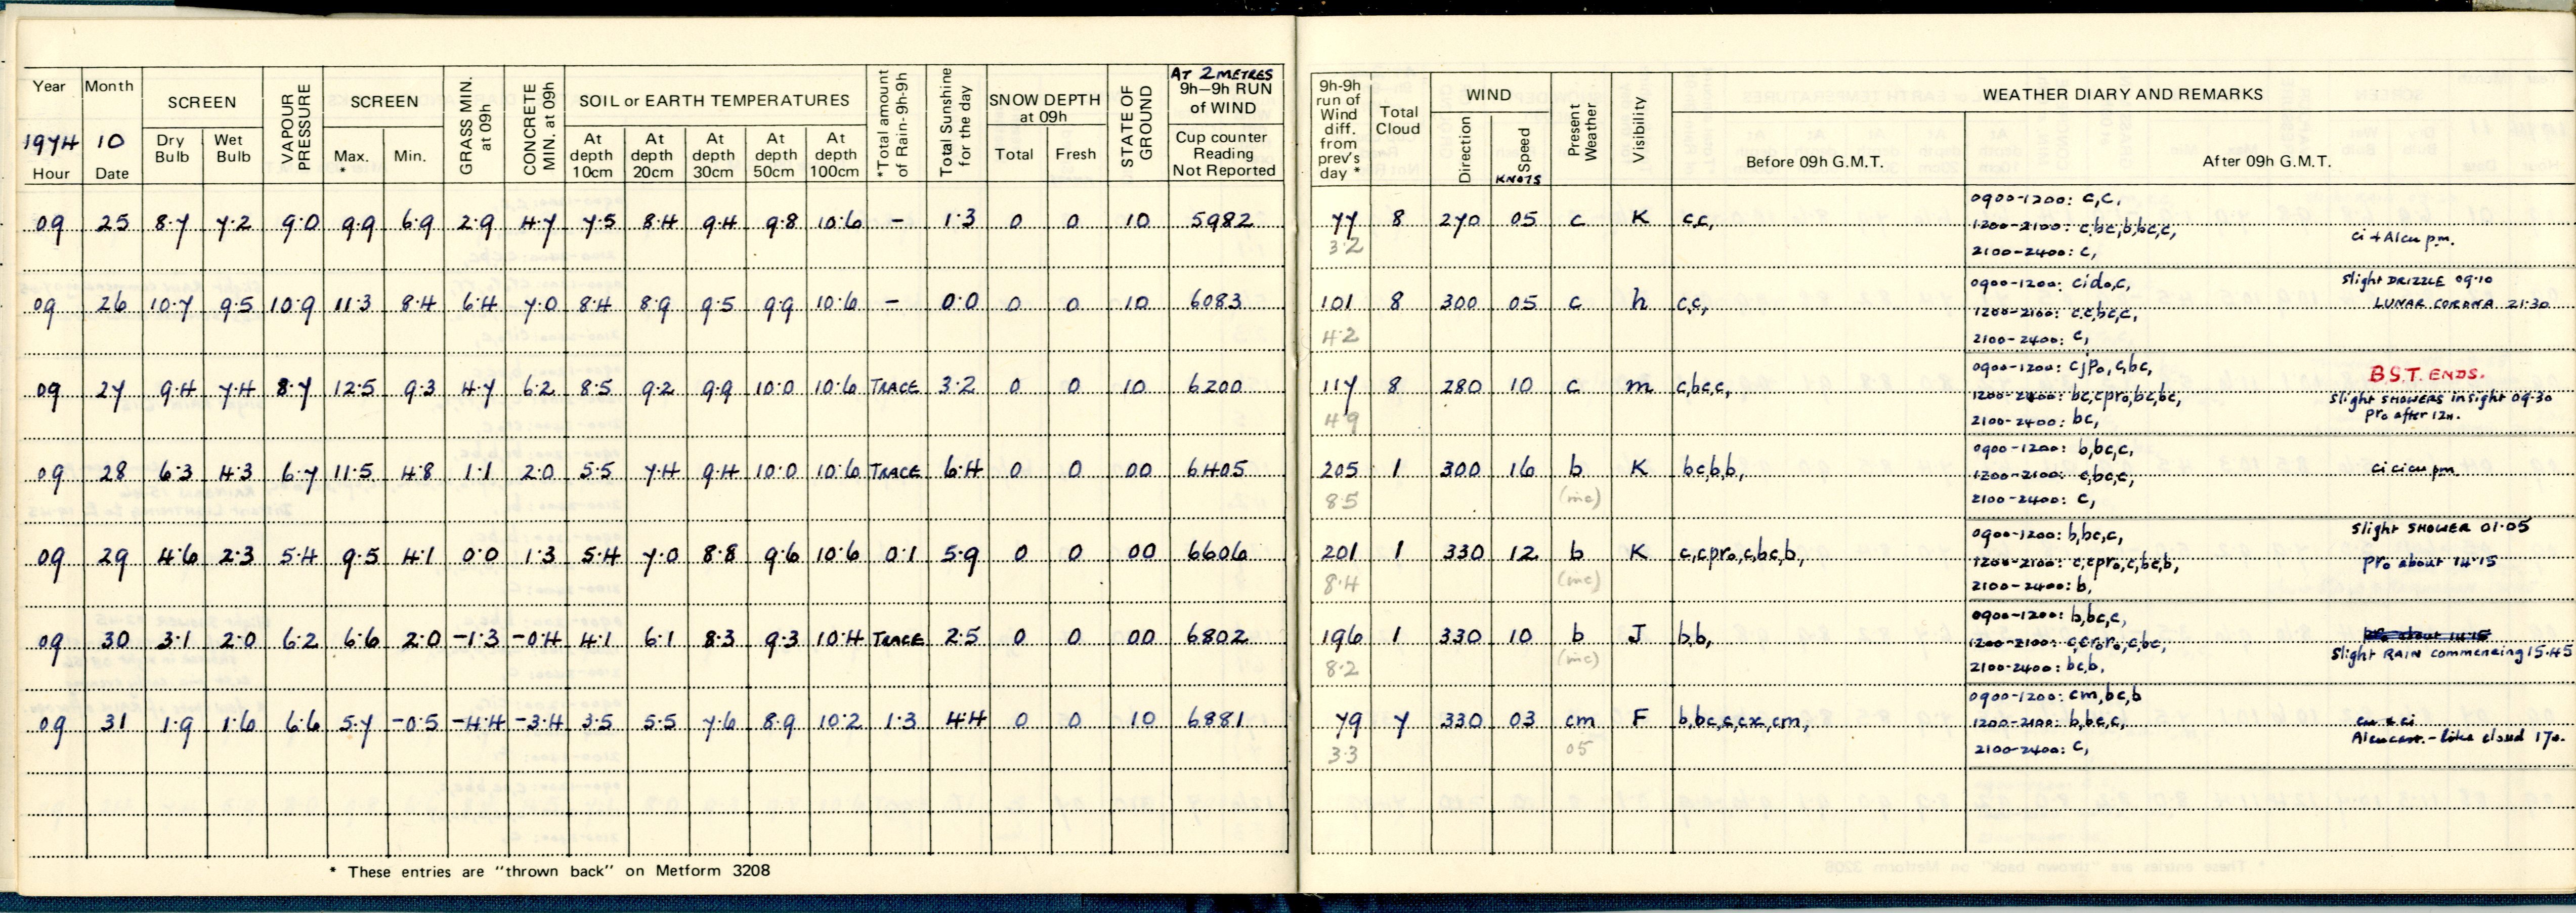 Year Month SCREEN VAPOUR PRESSURE SCREEN GRASS MIN. at 09h CONCRETE MIN. at 09h SOIL or EARTH TEMPERATURES *Total amount of Rain-9h-9h Total Sunshine for the day SNOW DEPTH at 09h STATE OF GROUND AT 2 METRES 9h—9h RUN of WIND
1974 10 Dry Bulb Wet Bulb Max. * Min. At depth 10cm At depth 20cm At depth 30cm At depth 50cm At depth 100cm Total Fresh Cup counter Reading Not Reported
Hour Date
09 25 8.7 7.2 9.0 9.9 6.9 2.9 4.7 7.5 8.4 9.4 9.8 10.6 – 1.3 0 0 10 5982
09 26 10.7 9.5 10.9 11.3 8.4 6.4 7.0 8.4 8.9 9.5 9.9 10.6 – 0.0 0 0 10 6083
09 27 9.4 7.4 8.7 12.5 9.3 4.7 6.2 8.5 9.2 9.9 10.0 10.6 TRACE 3.2 0 0 10 6200
09 28 6.3 4.3 6.7 11.5 4.8 1.1 2.0 5.5 7.4 9.4 10.0 10.6 TRACE 6.4 0 0 00 6405
09 29 4.6 2.3 5.4 9.5 4.1 0.0 1.3 5.4 7.0 8.8 9.6 10.6 0.1 5.9 0 0 00 6606
09 30 3.1 2.0 6.2 6.6 2.0 -1.3 -0.4 4.1 6.1 8.3 9.3 10.4 TRACE 2.5 0 0 00 6802
09 31 1.9 1.6 6.6 5.7 -0.5 -4.4 -3.4 3.5 5.5 7.6 8.9 10.2 1.3 4.4 0 0 10 6881
* These entries are "thrown back" on Metform 3208
9h-9h run of Wind diff. from prev's day * Total Cloud WIND Present Weather Visibility WEATHER DIARY AND REMARKS
Direction Speed KNOTS Before 09h G.M.T. After 09h G.M.T.
0900-1200: c,c,
77 8 270 05 c K c,c, 1200-2100: c,bc,b,bc,c,
3.2 ci + Alcu pm.
2100-2400: c,
0900-1200: cido,c, Slight DRIZZLE 09.10
101 8 300 05 c h c,c, LUNAR CORONA 21:30
1200-2100: c,c,bc,c,
4.2 2100-2400: c,
0900-1200: cjpo,c,bc, B.S.T. ENDS.
117 8 280 10 c m c,bc,c, 1200-2400: bc,cpro,bc,bc, Slight SHOWERS in sight 09.30
4.9 2100-2400: bc, pro after 12h.
0900-1200: b,bc,c,
205 1 300 16 b K bc,b,b, 1200-2100: c,bc,c, ci cicu pm
8.5 (mc) 2100-2400: c,
0900-1200: b,bc,c, Slight SHOWER 01.05
201 1 330 12 b K c,cpro,c,bc,b, 1200-2100: c,cpro,c,bc,b, pro about 14.15
8.4 (mc) 2100-2400: b,
0900-1200: b,bc,c,
196 1 330 10 b J b,b, 1200-2100: c,croro,c,bc,
8.2 (mc) 2100-2400: bc,b, Slight RAIN commencing 15.45
0900-1200: cm,bc,b
79 7 330 03 cm F b,bc,c,cx,cm, 1200-2100: b,bc,c, cu + ci
3.3 05 2100-2400: c, -like cloud 170.